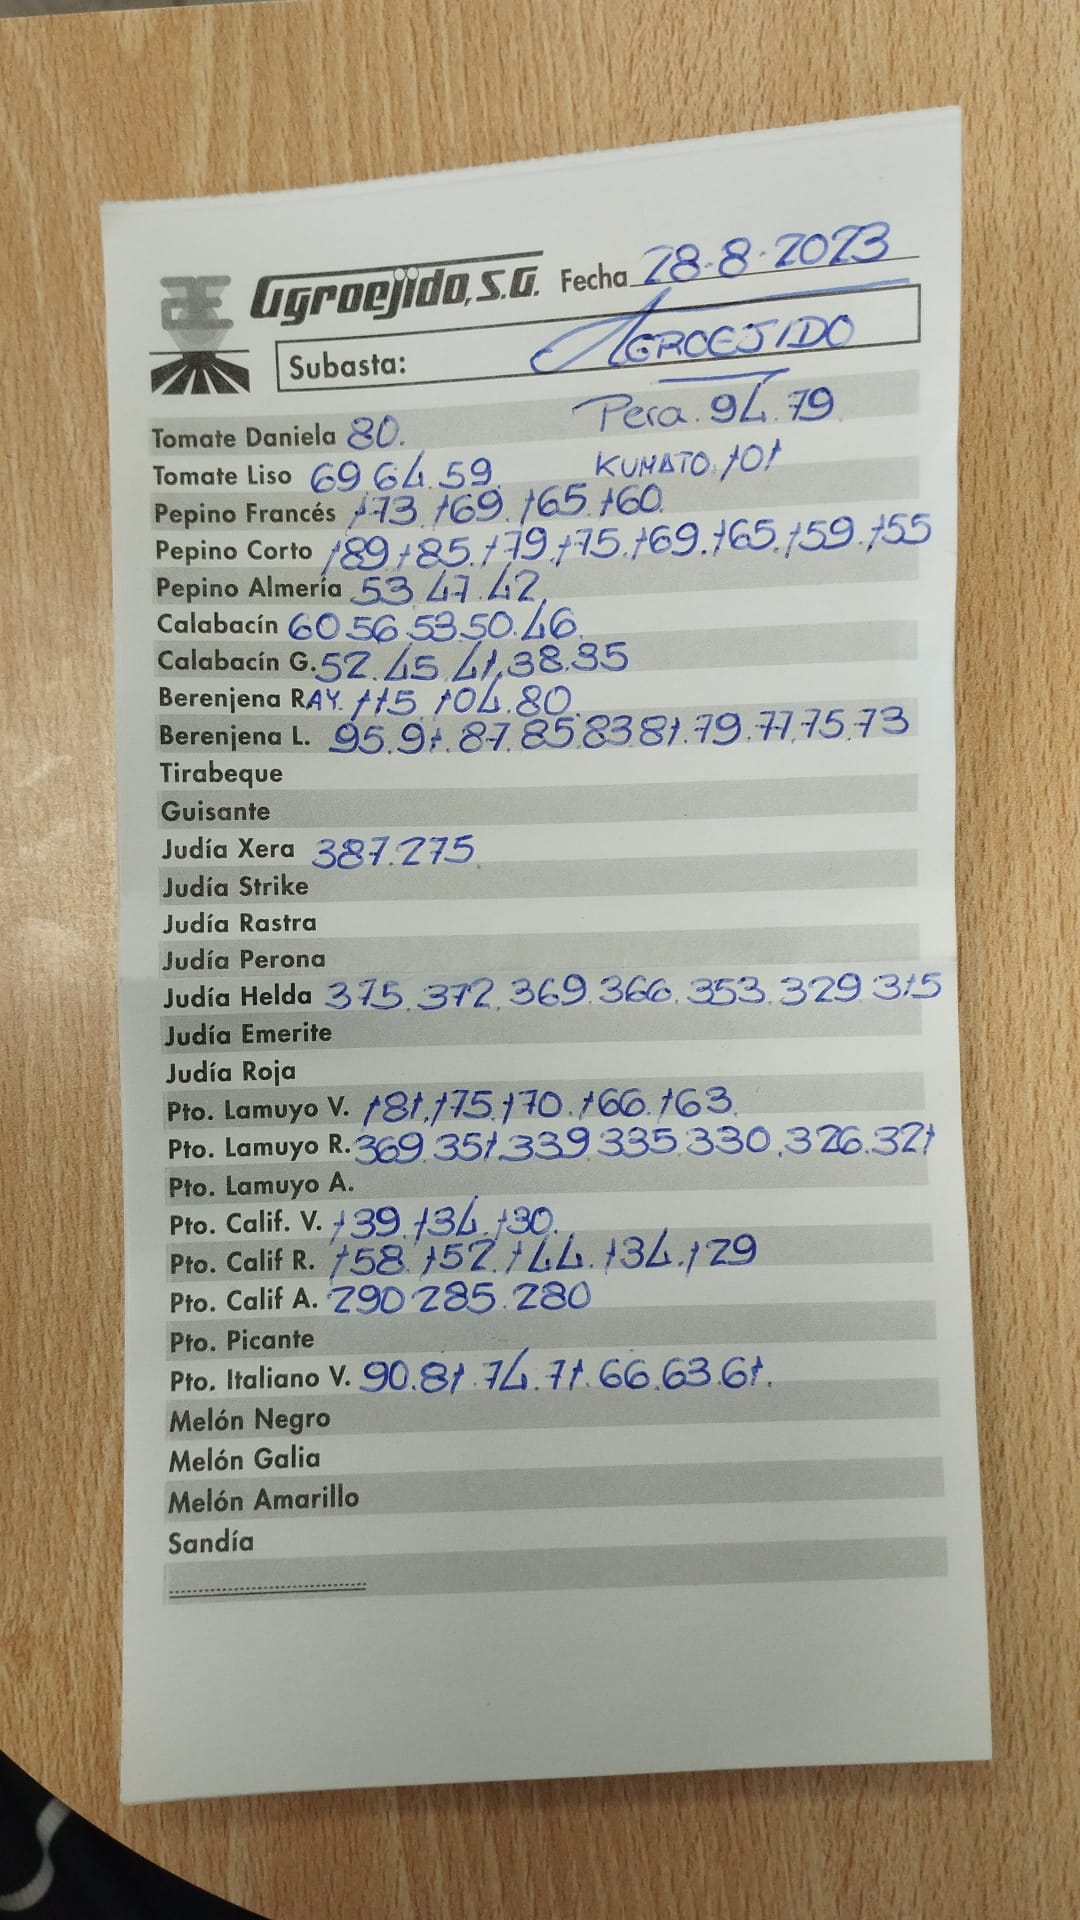 Agroejido, S.A. Fecha 28-8-2023
Subasta: AGROEJIDO
Tomate Daniela 80. Pera. 94. 79.
Tomate Liso 69 64. 59. KUMATO. 101
Pepino Francés 173. 169. 165. 160.
Pepino Corto 189. 185. 179. 175. 169. 165. 159. 155
Pepino Almería 53. 47. 42.
Calabacín 60. 56. 53. 50. 46.
Calabacín G. 52. 45. 41. 38. 35
Berenjena RAY. 115. 104. 80.
Berenjena L. 95. 91. 87. 85. 83. 81. 79. 77. 75. 73
Tirabeque
Guisante
Judía Xera 387. 275.
Judía Strike
Judía Rastra
Judía Perona
Judía Helda 375. 372. 369. 366. 353. 329 315
Judía Emerite
Judía Roja
Pto. Lamuyo V. 181. 175. 170. 166. 163.
Pto. Lamuyo R. 369. 351. 339. 335. 330. 326. 321
Pto. Lamuyo A.
Pto. Calif. V. 139. 134. 130.
Pto. Calif R. 158. 152. 144. 134. 129
Pto. Calif A. 290 285. 280
Pto. Picante
Pto. Italiano V. 90. 81. 74. 71. 66. 63. 61.
Melón Negro
Melón Galia
Melón Amarillo
Sandía